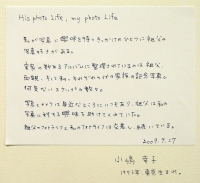 His photo Life, my photo Life
私が写真に興味を持ったきっかけのひとつに祖父の
写真好きがある。
実家の数あるアルバムに整理されているのは祖父、
両親、そして私、それぞれの代の家族の記念写真と
何気ないスナップの数々。
写真というものは身近なところにいつもあり、祖父は私の
写真に対する興味を助けてくれていた。
祖父のフォトライフと私のフォトライフは交差し、続いている。
2009.9.27
小嶋 幸子
1975年 東京生まれ。